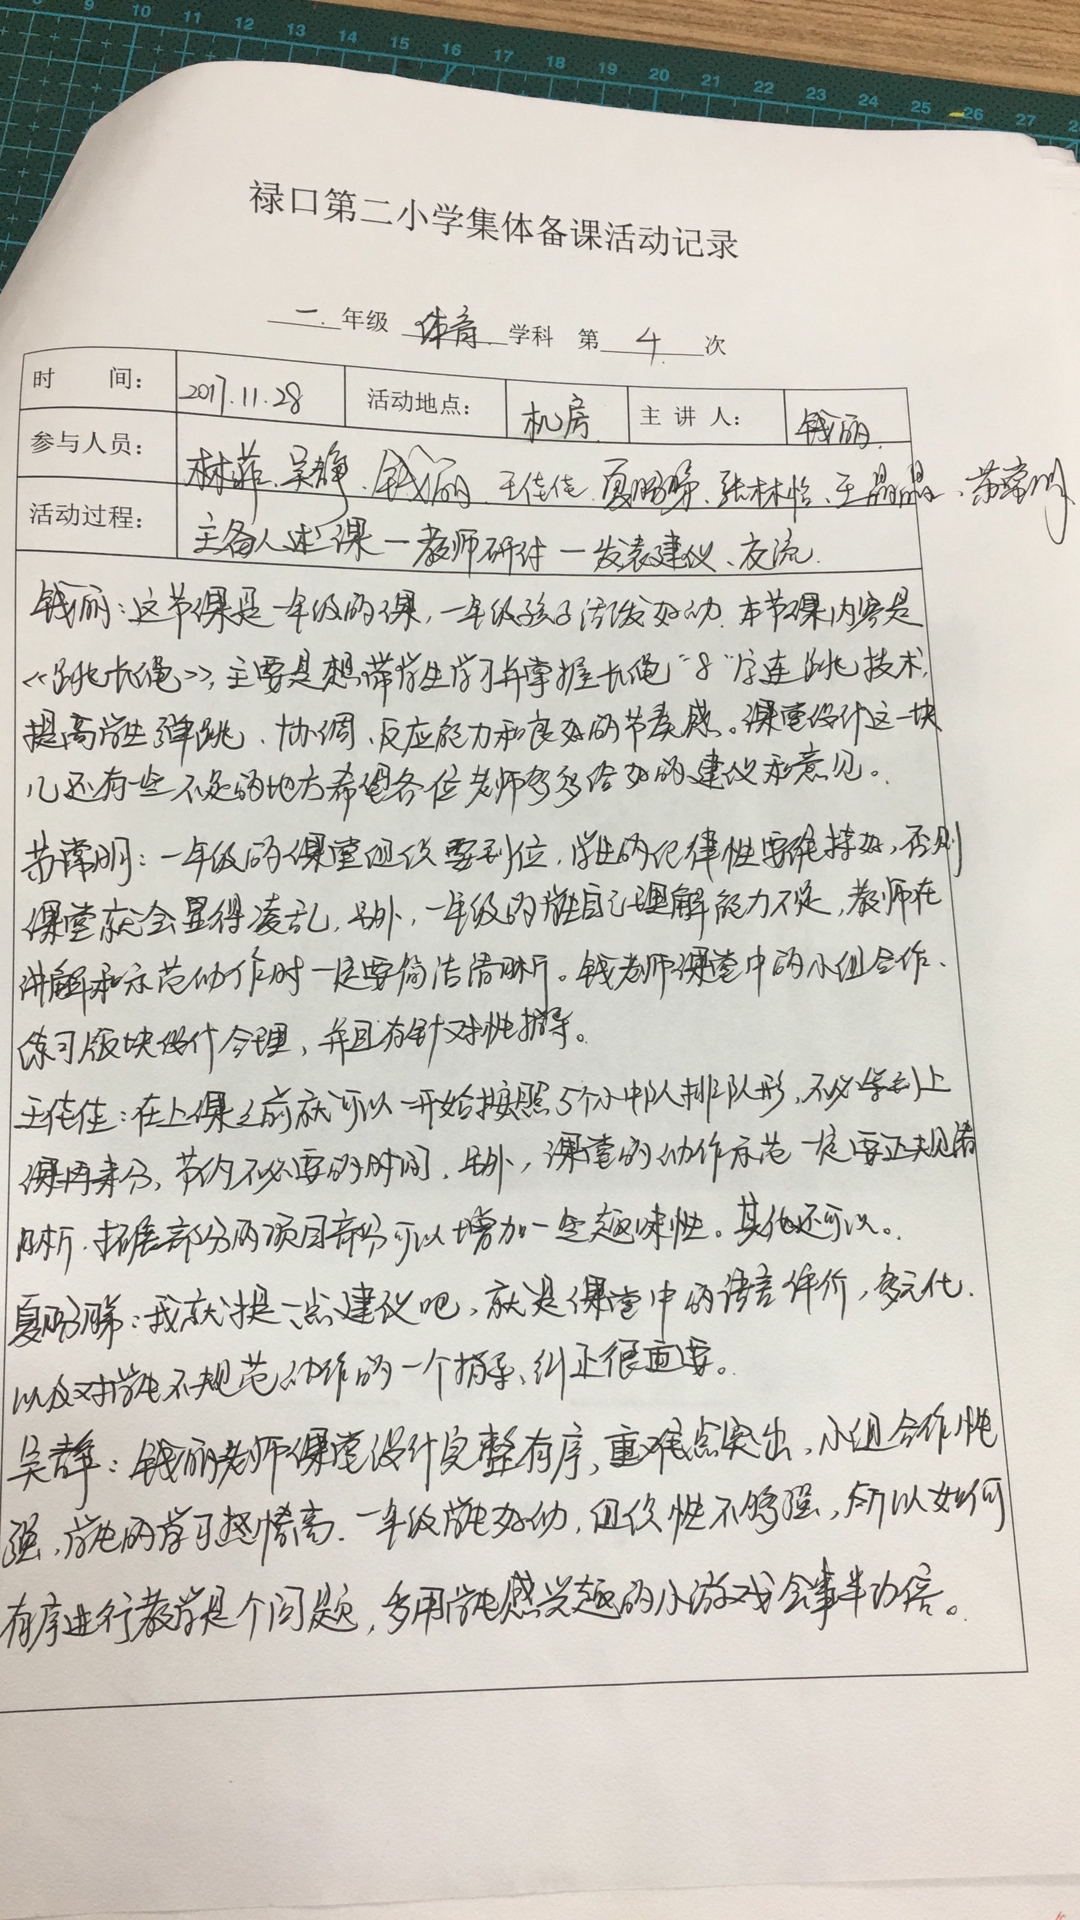 8 9 10 11 12 13 14 15 16 17 18 19 20 21 22 23 24 25 26 27
禄口第二小学集体备课活动记录
一年级 体育 学科 第 4 次
时 间: 2017.11.28 活动地点: 机房 主讲人: 钱丽
参与人员: 林菲、吴静、钱丽、王佳佳、夏 、张林怡、王晶晶、 常明
活动过程: 主备人述课—教师研讨—发表建议、交流
钱丽:这节课是一年级的课,一年级孩子活泼好动.本节课内容是
《跳长绳》,主要是想带学生学习并掌握长绳“8”字连跳技术,
提高学生弹跳、协调、反应能力和良好的节奏感。课堂设计这一块
儿还有些不足的地方希望各位老师多多给好的建议和意见。
常明:一年级的课堂组织要到位,学生的纪律性要维持好,否则
课堂就会显得凌乱,另外,一年级的学生自己理解能力不足,教师在
讲解和示范动作时一定要简洁清晰。钱老师课堂中的小组合作、
练习版块设计合理,并且有针对性指导。
王佳佳:在上课之前就可以一开始按照5个小中队排队形,不必等到上
课再来分,节约不必要的时间.另外,课堂的动作示范一定要正规清
晰.拓展部分的项目部分可以增加一些趣味性。其他还可以。
夏 :我就提一点建议吧,就是课堂中的语言评价,多元化.
以及对学生不规范动作的一个指导、纠正很重要。
吴静:钱丽老师课堂设计完整有序,重难点突出,小组合作性
强,学生的学习热情高.一年级学生好动,组织性不够强,所以如何
有序进行教学是个问题,多用学生感兴趣的小游戏会事半功倍。